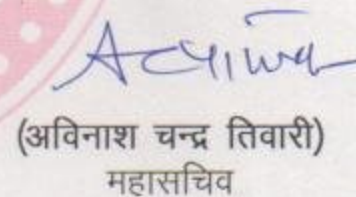 (अविनाश चन्द्र तिवारी)
महासचिव